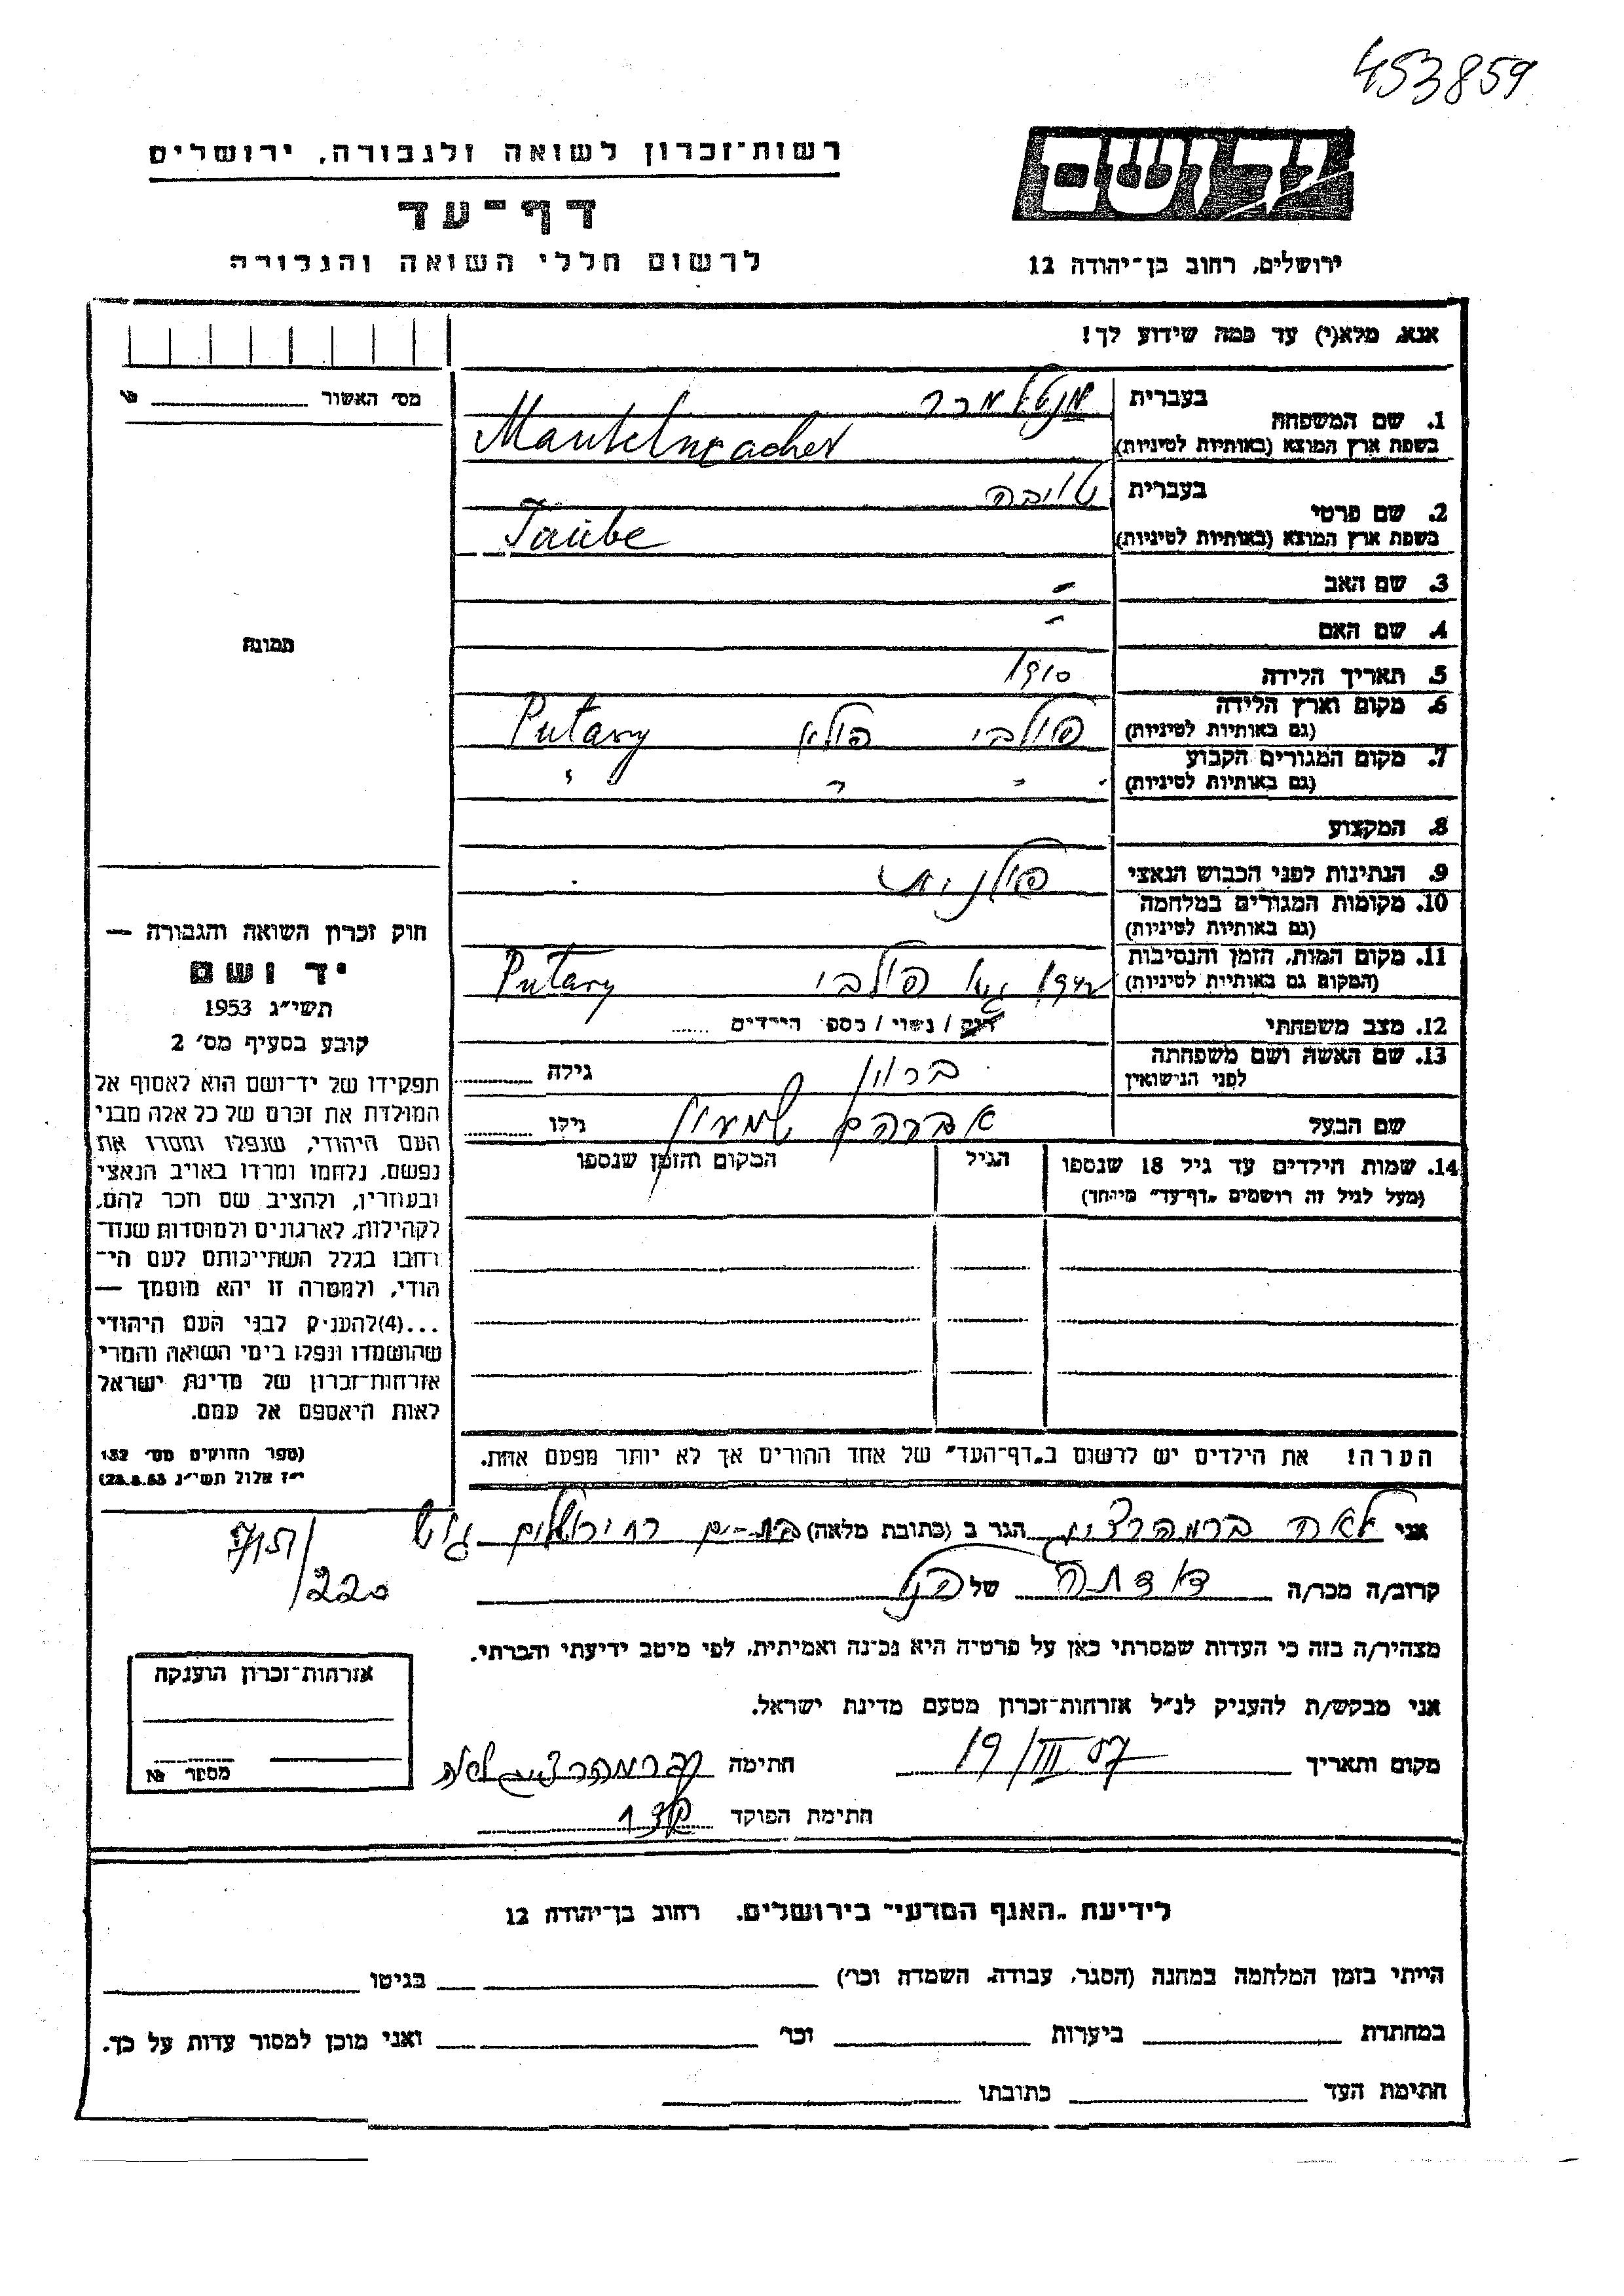 453859
יד ושם
רשות־זכרון לשואה ולגבורה, ירושלים
דף־עד
לרשום חללי השואה והגבורה
ירושלים, רחוב בן־יהודה 12
אנא, מלא(י) עד כמה שידוע לך!
מס׳ האשור
בעברית
1. שם המשפחה
בשפת ארץ המוצא (באותיות לטיניות) Mantelmacher
בעברית טויבה
2. שם פרטי
בשפת ארץ המוצא (באותיות לטיניות) Taube
3. שם האב -
4. שם האם -
תמונה
5. תאריך הלידה 1910
6. מקום וארץ הלידה
(גם באותיות לטיניות) פולבי פולין
7. מקום המגורים הקבוע
(גם באותיות לטיניות)
8. המקצוע
9. הנתינות לפני הכבוש הנאצי פולנית
10. מקומות המגורים במלחמה
(גם באותיות לטיניות)
11. מקום המות, הזמן והנסיבות
(המקום גם באותיות לטיניות) 1942 גטו פולבי
12. מצב משפחתי רווק / נשוי / מספר הילדים
13. שם האשה ושם משפחתה
לפני הנישואין ברוון גילה
שם הבעל אברהם שמעון גילו
14. שמות הילדים עד גיל 18 שנספו הגיל המקום והזמן שנספו
(מעל לגיל זה רושמים „דף־עד" מיוחד)
הערה! את הילדים יש לרשום ב„דף־העד" של אחד ההורים אך לא יותר מפעם אחת.
חוק זכרון השואה והגבורה —
יד ושם
תשי״ג 1953
קובע בסעיף מס׳ 2
תפקידו של יד־ושם הוא לאסוף אל
המולדת את זכרם של כל אלה מבני
העם היהודי, שנפלו ומסרו את
נפשם, נלחמו ומרדו באויב הנאצי
ובעוזריו, ולהציב שם וזכר להם,
לקהילות, לארגונים ולמוסדות שנח־
רבו בגלל השתייכותם לעם הי־
הודי, ולמטרה זו יהא מוסמך —
...(4)להעניק לבני העם היהודי
שהושמדו ונפלו בימי השואה והמרי
אזרחות־זכרון של מדינת ישראל
לאות היאספם אל עמם.
(ספר החוקים מס׳ 132
י״ז אלול תשי״ג 28.8.53)
אני לאה הגר ב (כתובת מלאה) בת-ים רח ירושלים
220
קרוב/ה מכר/ה דודתה של
מצהיר/ה בזה כי העדות שמסרתי כאן על פרטיה היא נכונה ואמיתית, לפי מיטב ידיעתי והכרתי.
אני מבקש/ת להעניק לנ״ל אזרחות־זכרון מטעם מדינת ישראל.
מקום ותאריך 19/III 57 חתימה
חתימת הפוקד
אזרחות־זכרון הוענקה
מספר №
לידיעת „האגף המדעי" בירושלים, רחוב בן־יהודה 12
הייתי בזמן המלחמה במחנה (הסגר, עבודה, השמדה וכו׳) בגיטו
במחתרת ביערות וכו׳ ואני מוכן למסור עדות על כך.
חתימת העד כתובתו